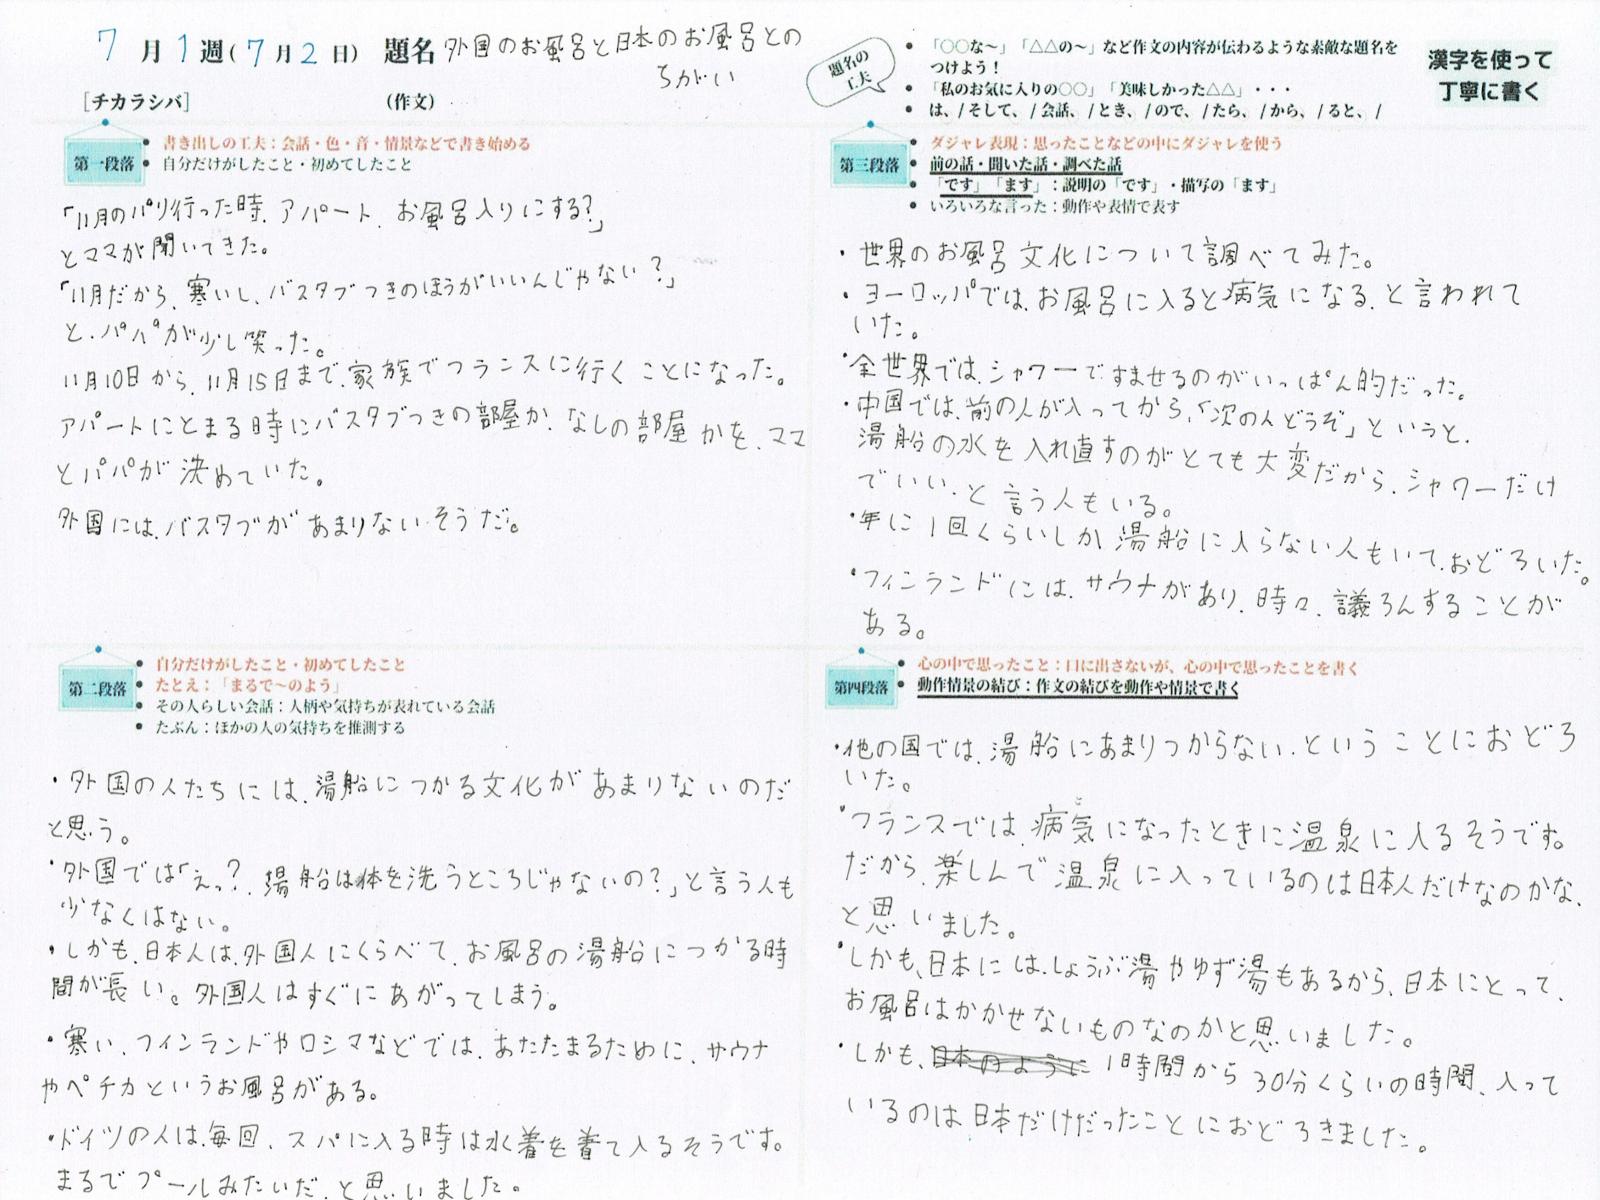 7月1週(7月2日) 題名 外国のお風呂と日本のお風呂との
ちがい
[チカラシバ] (作文)
題名の
工夫
・「○○な～」「△△の～」など作文の内容が伝わるような素敵な題名を
つけよう！
・「私のお気に入りの○○」「美味しかった△△」・・・
・は、/そして、/会話、/とき、/ので、/たら、/から、/ると、/
漢字を使って
丁寧に書く
第一段落
・書き出しの工夫：会話・色・音・情景などで書き始める
・自分だけがしたこと・初めてしたこと
「11月のパリ行った時、アパート、お風呂入りにする？」
とママが聞いてきた。
「11月だから、寒いし、バスタブつきのほうがいいんじゃない？」
と、パパが少し笑った。
11月10日から、11月15日まで、家族でフランスに行くことになった。
アパートにとまる時にバスタブつきの部屋か、なしの部屋かを、ママ
とパパが決めていた。
外国には、バスタブがあまりないそうだ。
第二段落
・自分だけがしたこと・初めてしたこと
・たとえ：「まるで～のよう」
・その人らしい会話：人柄や気持ちが表れている会話
・たぶん：ほかの人の気持ちを推測する
・外国の人たちには、湯船につかる文化があまりないのだ
と思う。
・外国では「えっ？、湯船は体を洗うところじゃないの？」と言う人も
少なくはない。
・しかも、日本人は、外国人にくらべて、お風呂の湯船につかる時
間が長い。外国人はすぐにあがってしまう。
・寒い、フィンランドやロシマなどでは、あたたまるために、サウナ
やペチカというお風呂がある。
・ドイツの人は、毎回、スパに入る時は水着を着て入るそうです。
まるでプールみたいだ、と思いました。
第三段落
・ダジャレ表現：思ったことなどの中にダジャレを使う
・前の話・聞いた話・調べた話
・「です」「ます」：説明の「です」・描写の「ます」
・いろいろな言った：動作や表情で表す
・世界のお風呂文化について調べてみた。
・ヨーロッパでは、お風呂に入ると病気になる、と言われて
いた。
・全世界では、シャワーですませるのがいっぱん的だった。
・中国では、前の人が入ってから、「次の人どうぞ」というと、
湯船の水を入れ直すのがとても大変だから、シャワーだけ
でいい、と言う人もいる。
・年に1回くらいしか湯船に入らない人もいて、おどろいた。
・フィンランドには、サウナがあり、時々、議ろんすることが
ある。
第四段落
・心の中で思ったこと：口に出さないが、心の中で思ったことを書く
・動作情景の結び：作文の結びを動作や情景で書く
・他の国では、湯船にあまりつからない、ということにおどろ
いた。
・フランスでは、病気になったときに温泉に入るそうです。
だから、楽しんで温泉に入っているのは日本人だけなのかな、
と思いました。
・しかも、日本には、しょうぶ湯やゆず湯もあるから、日本にとって、
お風呂はかかせないものなのかと思いました。
・しかも、日本のように 1時間から30分くらいの時間、入って
いるのは日本だけだったことにおどろきました。